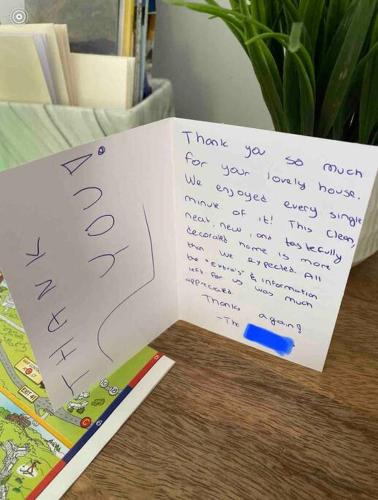 THANK
YOU!
Thank you so much
for your lovely house.
We enjoyed every single
minute of it! This clean,
neat, new, and tastefully
decorated home is more
than we expected. All
the "extra's" & information
left for us was much
appreciated.
Thanks again
-The